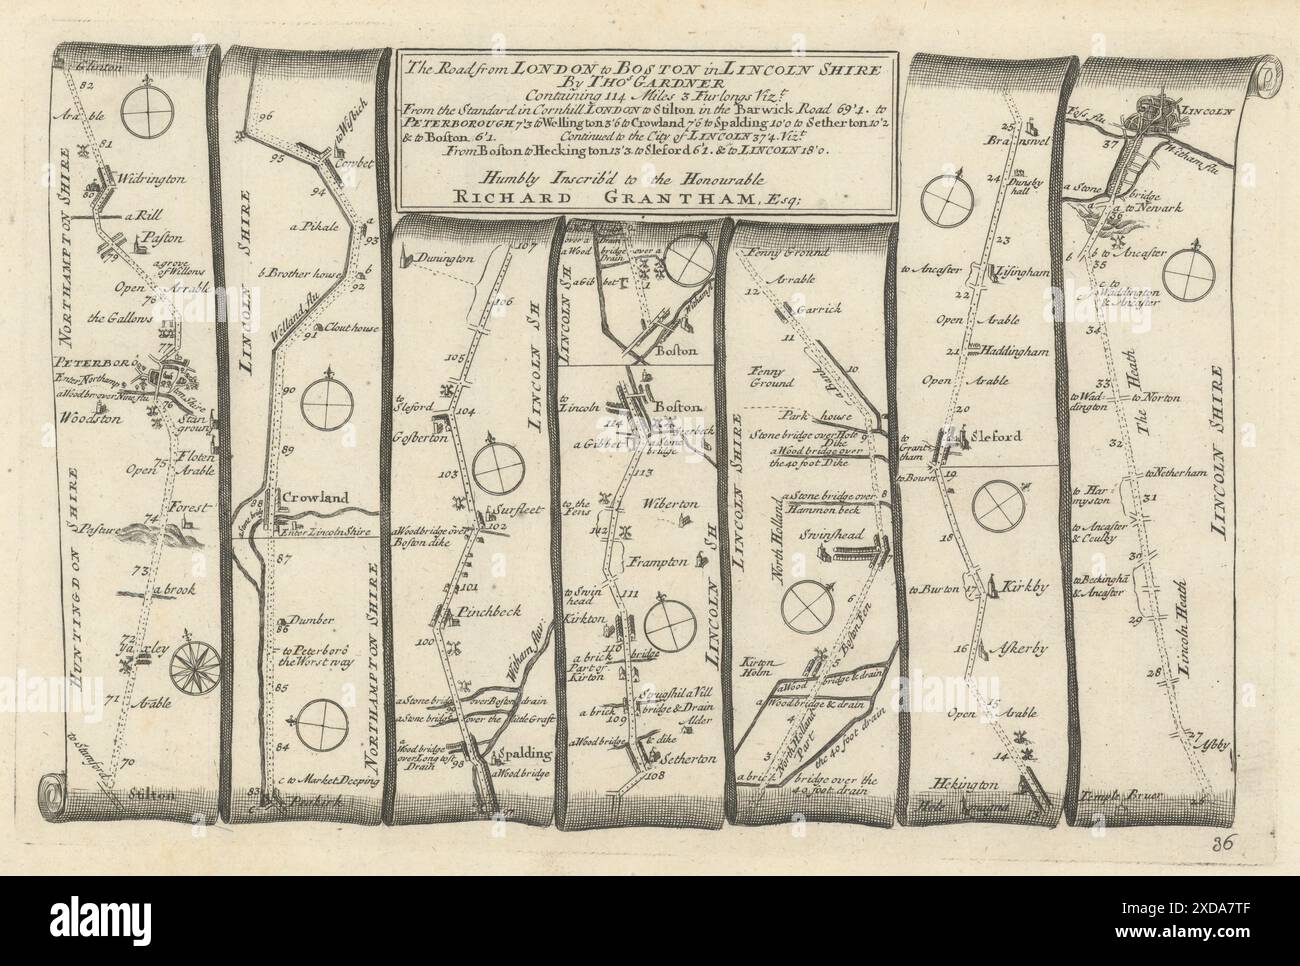 The Road from LONDON to BOSTON in LINCOLN SHIRE
By THOs. GARDNER
Containing 114 Miles 3 Furlongs Vizt.
From the Standard in Cornhill LONDON to Stilton in the Barwick Road 69'1. to
PETERBOROUGH 7'3 to Wellington 3'6 to Crowland 7'6 to Spalding 10'0 to Setherton 10'2
& to Boston 6'1. Continued to the City of LINCOLN 37'4. Vizt.
From Boston to Heckington 13'3. to Sleford 6'1. & to LINCOLN 18'0.
Humbly Inscrib'd to the Honourable
RICHARD GRANTHAM, Esq;
Glinton
82
Arable
81
Widrington
80
a Rill
Paston
79
a grove of Willows
Open Arrable
78
the Gallows
77
PETERBORO
Enter Northampton Shire
a Wood br over Nine flu
76
Woodston
Stan ground
Floten
75
Open Arable
Forest
74
Pasture
73
a brook
72
Yaxley
71
Arable
70
to Stamford
Stilton
NORTHAMPTON SHIRE
HUNTINGDON SHIRE
96
to Wisbich
95
Cowbet
94
a
a Pikale
93
b Brother house
b
92
Welland flu
91
Clout house
90
89
88
Crowland
a Stone bridg
Enter Lincoln Shire
87
Dumber
86
to Peterboro the Worst way
85
84
c to Market Deeping
83
Peakirk
LINCOLN SHIRE
NORTHAMPTON SHIRE
107
Dunington
106
105
to Sleford
104
Gosberton
103
Surfleet
a Wood bridg over Boston dike
102
101
Pinchbeck
100
Witham flu
a Stone bridg over Boston drain
a Stone bridg over the little Graft
a Wood bridg over Long toft Drain
98
Spalding
a Wood bridge
97
LINCOLN SH
a Wood bridge over a Drain
a Gibbet
1
Witham fl
Boston
LINCOLN SH
to Lincoln
Boston
114
a Gibbet
a Stone bridge
113
to the Fens
Wiberton
112
Frampton
to Swinhead
111
Kirkton
110
a brick bridge
Part of Kirton
Spugshil a Vill
a brick bridg & Drain
109
Alder
a Wood bridg & dike
Setherton
108
LINCOLN SH
Fenny Ground
Arrable
12
Garrick
11
Fenny Ground
a Bank
10
Park house
9
Stone bridge over Hole Dike
a Wood bridg over the 40 foot Dike
a Stone bridg over Hammon beck
8
Swinshead
North Holland
6
5
Boston Fen
Kirton Holm
a Wood bridge & drain
a Wood bridg & drain
4
3
North Holland Part
the 40 foot drain
a brick bridge over the 40 foot drain
LINCOLN SHIRE
25
Braunsvel
24
Dunsby hall
23
to Ancaster
Lesingham
22
Open Arable
21
Haddingham
Open Arable
20
Sleford
to Grantham
19
to Bourn
18
to Burton
17
Kirkby
16
Askerby
15
Open Arable
14
Hekington
13
Foss flu
LINCOLN
37
Witham flu
a Stone bridge
36
a to Newark
b to Ancaster
35
c to Waddington & Ancaster
34
The Heath
33
to Waddington
32
to Norton
to Netherham
to Harmyston
31
to Ancaster & Ceulby
30
to Beckingha & Ancaster
29
Lincoln Heath
28
27
Ashby
Temple Bruer
26
LINCOLN SHIRE
36
alamy
Image ID: 2XDA7TF
www.alamy.com